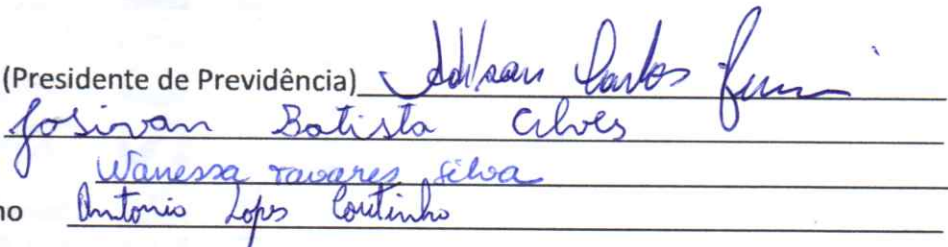 (Presidente de Previdência) Adilson Carlos
Josivan Batista Alves
Wanessa Tavares Silva
no Antonio Lopes Coutinho